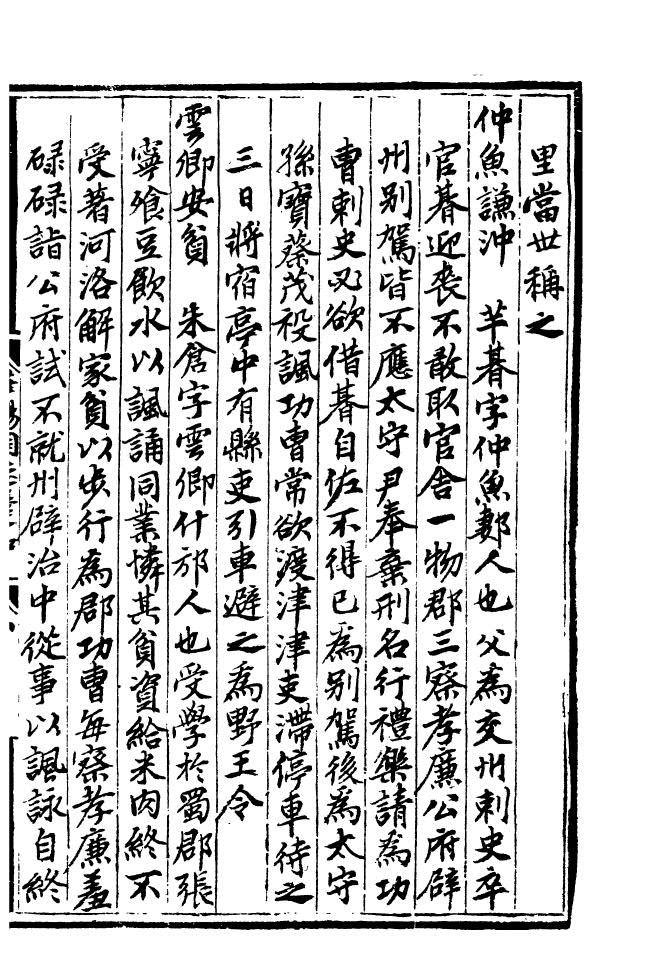 里當世稱之
仲魚謙沖　芊暮字仲魚郪人也父為交州刺史卒
官暮迎喪不敢取官舍一物郡三察孝廉公府辟
州别駕皆不應太守尹奉棄刑名行禮樂請為功
曹刺史又欲借暮自佐不得已為别駕後為太守
孫寶蔡茂祋諷功曹常欲渡津津吏滯停車待之
三日將宿亭中有縣吏引車避之為野王令
雲卿安貧　朱倉字雲卿什邡人也受學於蜀郡張
寧飱豆飲水以諷誦同業憐其貧資給米肉終不
受著河洛解家貧以步行為郡功曹每察孝廉羞
碌碌詣公府試不就州辟治中從事以諷詠自終